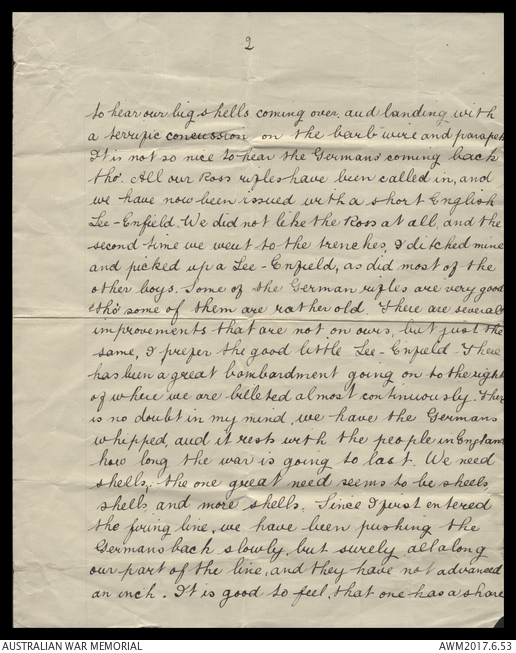 2
to hear our big shells coming over, and landing with
a terrific concussion on the barb wire and parapet
It is not so nice to hear the Germans coming back
tho'. All our Ross rifles have been called in, and
we have now been issued with a short English
Lee-Enfield. We did not like the Ross at all, and the
second time we went to the trenches, I ditched mine
and picked up a Lee-Enfield, as did most of the
other boys. Some of the German rifles are very good
tho' some of them are rather old. There are several
improvements that are not on ours, but just the
same, I prefer the good little Lee-Enfield. There
has been a great bombardment going on to the right
of where we are billeted almost continuously. There
is no doubt in my mind, we have the Germans
whipped, and it rests with the people in England
how long the war is going to last. We need
shells, the one great need seems to be shells
shells and more shells. Since I first entered
the firing line, we have been pushing the
Germans back slowly, but surely all along
our part of the line, and they have not advanced
an inch. It is good to feel, that one has a share
AUSTRALIAN WAR MEMORIAL
AWM2017.6.53